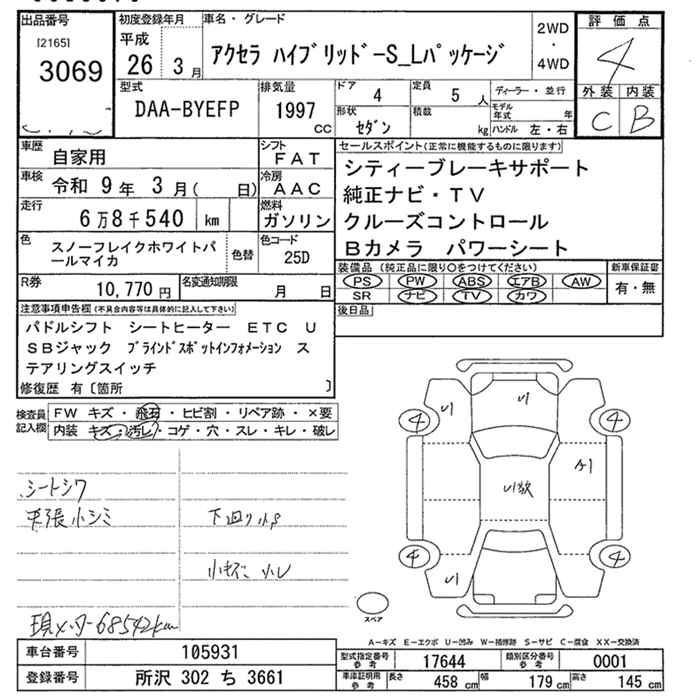 出品番号
[2165]
3069
初度登録年月
平成
26 3月
車名・グレード
アクセラ ハイブリッドーS_Lパッケージ
2WD
・
4WD
評価点
4
外装 内装
C B
型式
DAA-BYEFP
排気量
1997
cc
ドア 4
定員 5 人
形状 セダン
積載 kg
ディーラー・並行
モデル年式 年
ハンドル 左・右
車歴 自家用
シフト FAT
車検 令和 9年 3月( 日)
冷房 AAC
走行 6万8千540 km
燃料 ガソリン
色 スノーフレイクホワイトパールマイカ
色替
色コード 25D
R券 10,770円
名変通知期限 月 日
セールスポイント(正常に機能するものに限ります)
シティーブレーキサポート
純正ナビ・TV
クルーズコントロール
Bカメラ パワーシート
装備品(純正品に限り○をつけてください)
PS PW ABS エアB AW
SR ナビ TV カワ
新車保証書
有・無
後日品
注意事項申告欄(不具合内容等は具体的に記入して下さい)
パドルシフト シートヒーター ETC U
SBジャック ブラインドスポットインフォメーション ス
テアリングスイッチ
修復歴 有〔箇所 〕
検査員記入欄
FW キズ・飛石・ヒビ割・リペア跡・×要
内装 キズ・汚レ・コゲ・穴・スレ・キレ・破レ
シートシワ
天張小シミ
下廻り小S
現メーター68542km
4
4
4
4
スペア
A-キズ E-エクボ U-凹み W-補修跡 S-サビ C-腐食 XX-交換済
車台番号 105931
登録番号 所沢 302 ち 3661
型式指定番号 参考 17644
類別区分番号 参考 0001
車庫証明用 参考 長さ 458 cm 幅 179 cm 高さ 145 cm